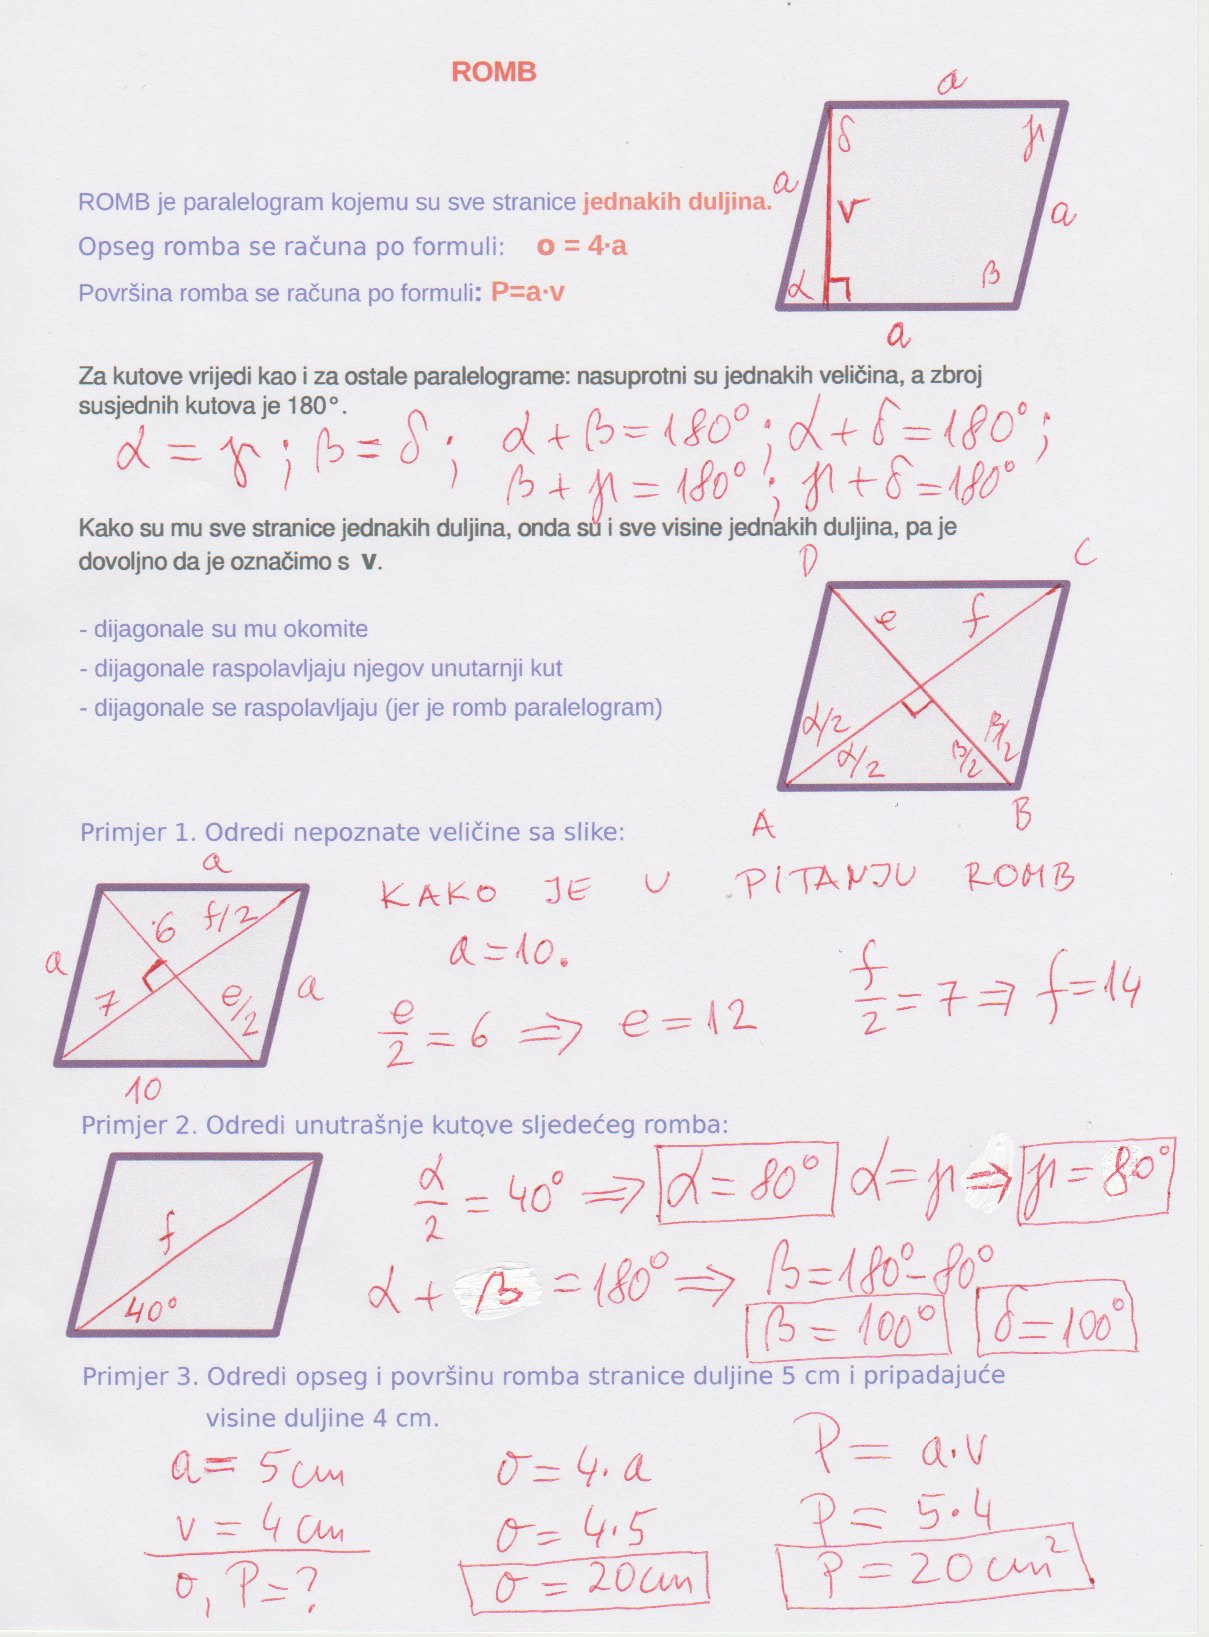 ROMB
a
δ γ
ROMB je paralelogram kojemu su sve stranice jednakih duljina.
a v a
Opseg romba se računa po formuli: o = 4·a
Površina romba se računa po formuli: P=a·v
α β
a
Za kutove vrijedi kao i za ostale paralelograme: nasuprotni su jednakih veličina, a zbroj
susjednih kutova je 180°.
α = γ ; β = δ ; α + β = 180° ; α + δ = 180° ;
β + γ = 180° ; γ + δ = 180°
Kako su mu sve stranice jednakih duljina, onda su i sve visine jednakih duljina, pa je
dovoljno da je označimo s v.
D C
e f
- dijagonale su mu okomite
- dijagonale raspolavljaju njegov unutarnji kut
- dijagonale se raspolavljaju (jer je romb paralelogram)
α/2 α/2 β/2 β/2
A B
Primjer 1. Odredi nepoznate veličine sa slike:
a
6 f/2
a 7 e/2 a
10
KAKO JE U PITANJU ROMB
a = 10.
e/2 = 6 ⇒ e = 12
f/2 = 7 ⇒ f = 14
Primjer 2. Odredi unutrašnje kutove sljedećeg romba:
f
40°
α/2 = 40° ⇒ α = 80° α = γ ⇒ γ = 80°
α + β = 180° ⇒ β = 180° - 80°
β = 100° δ = 100°
Primjer 3. Odredi opseg i površinu romba stranice duljine 5 cm i pripadajuće
visine duljine 4 cm.
a = 5 cm
v = 4 cm
o, P = ?
o = 4 · a
o = 4 · 5
o = 20 cm
P = a · v
P = 5 · 4
P = 20 cm²